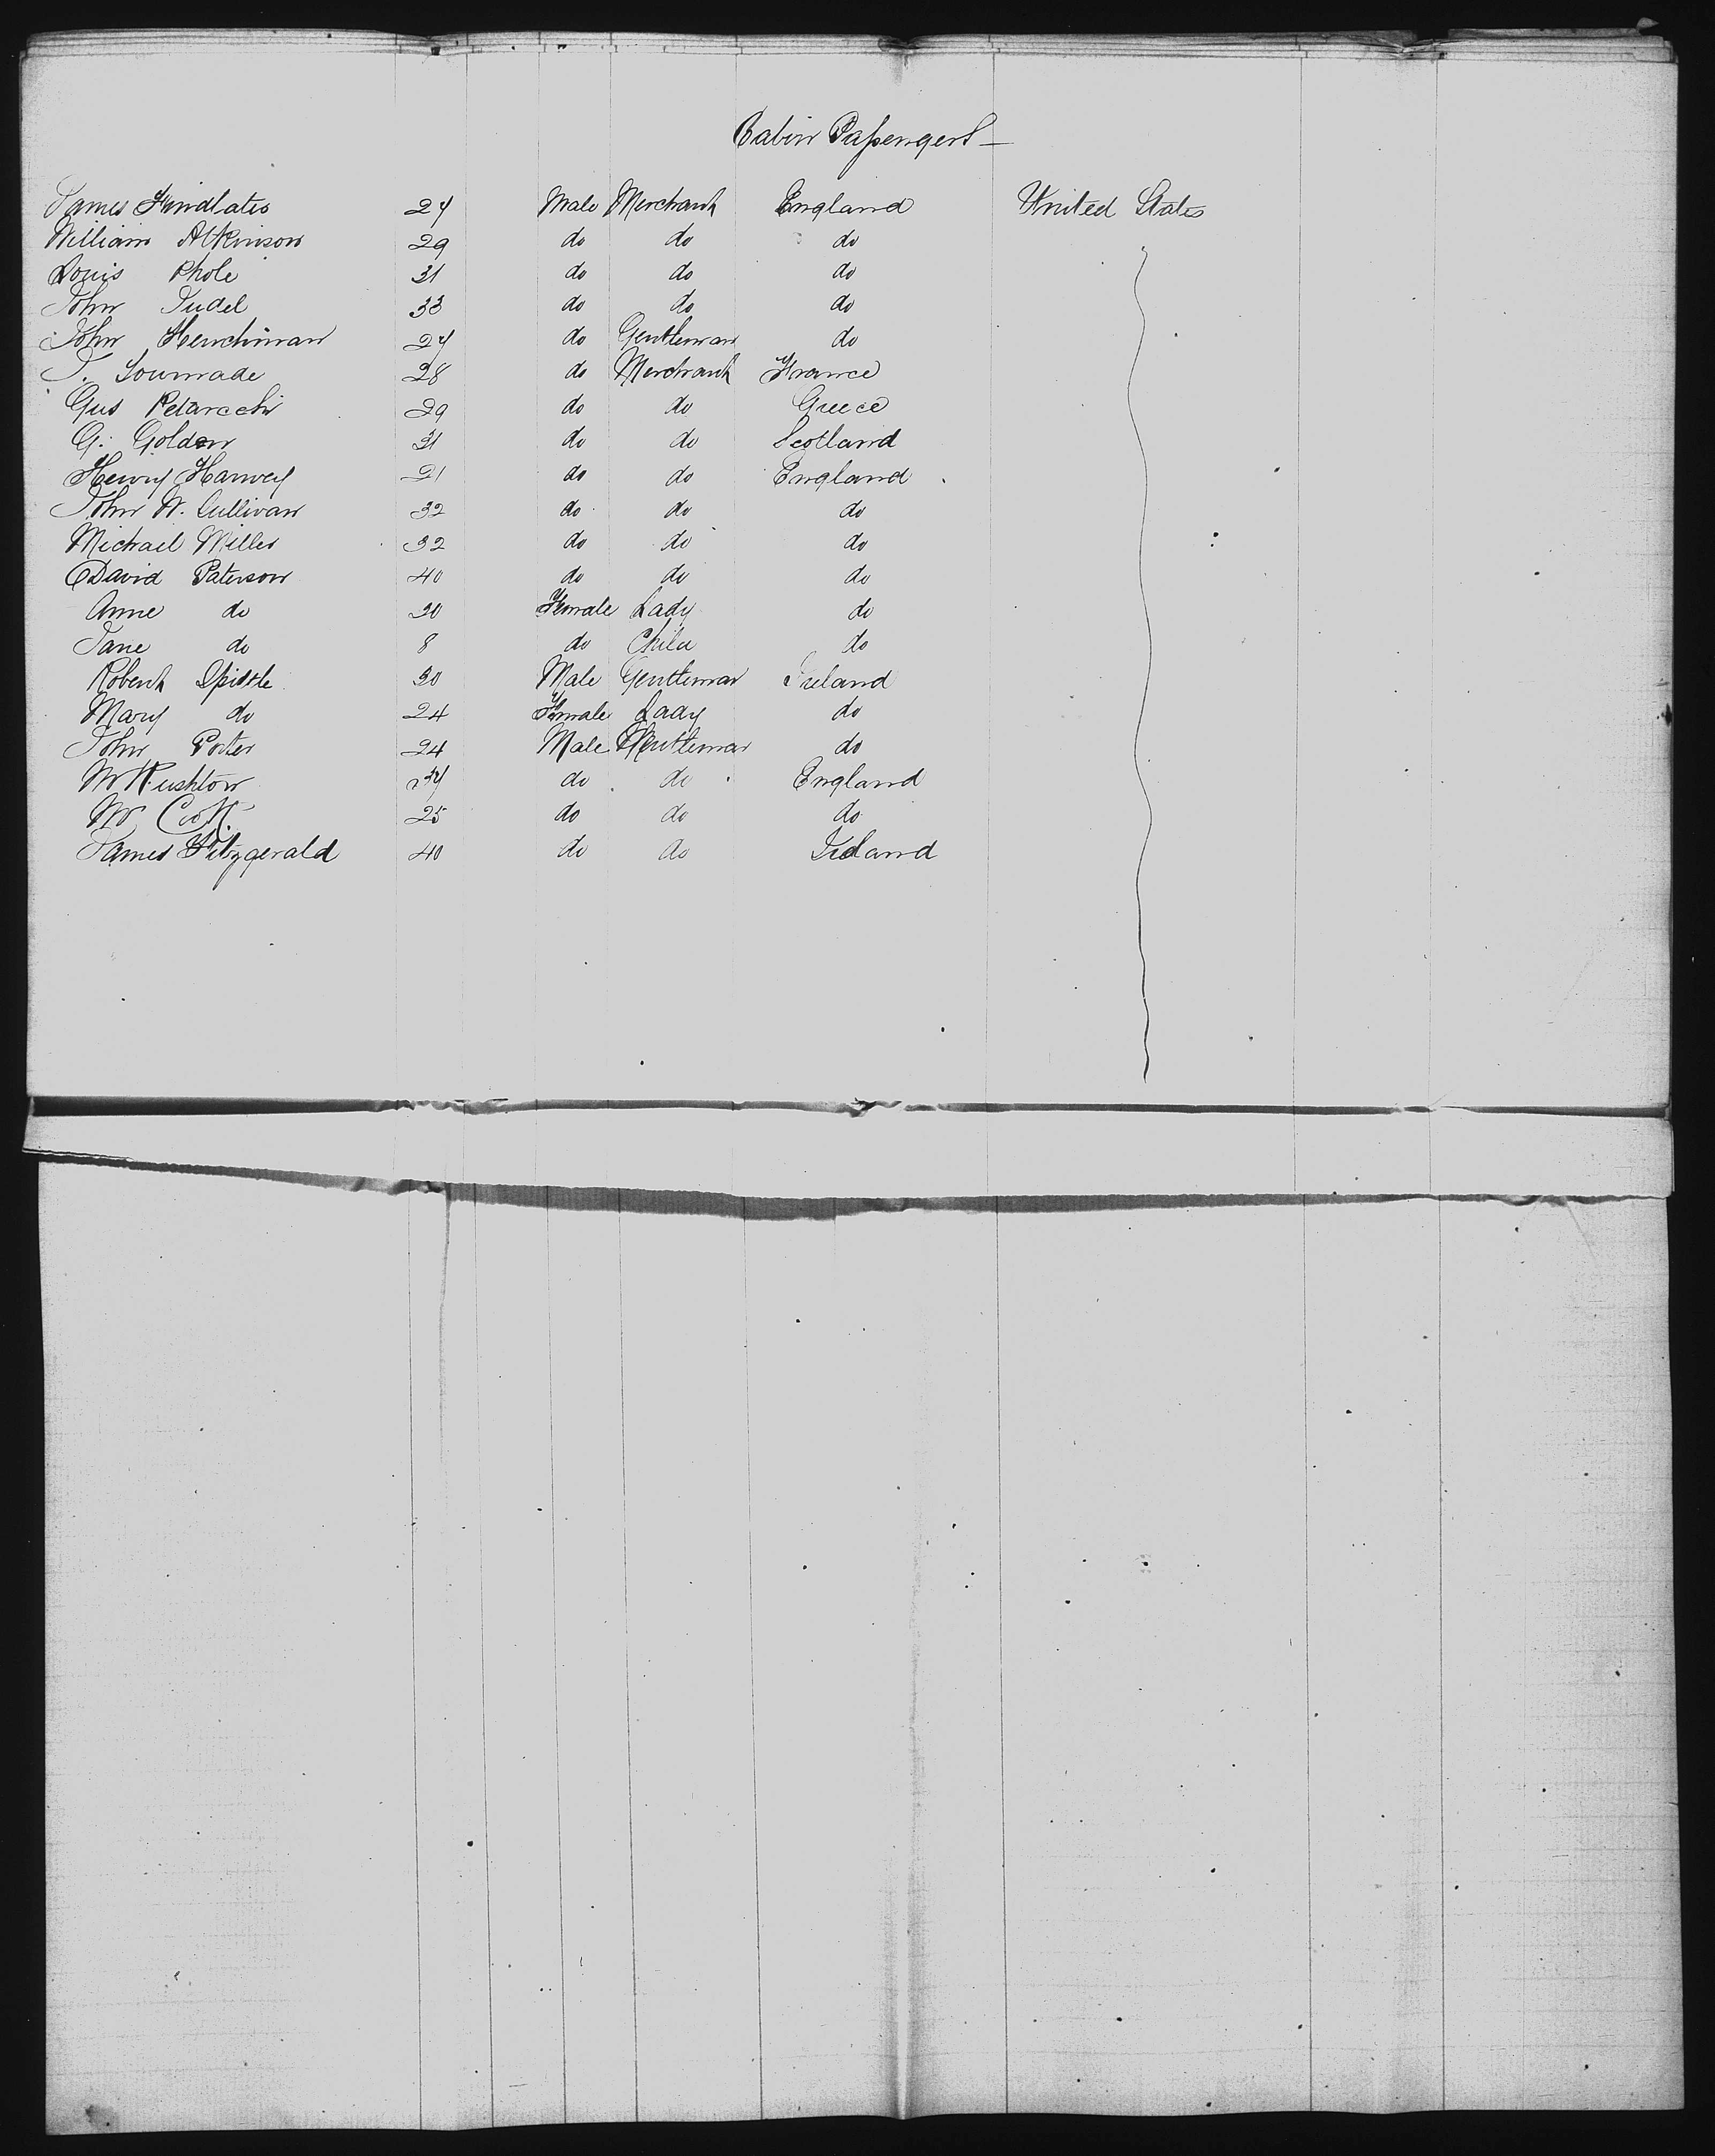 Cabin Passengers —
James Findlater 27 Male Merchant England United States
William Atkinson 29 do do do
Louis Phole 31 do do do
John Tudel 33 do do do
John Henchman 27 do Gentleman do
28 do Merchant France
Gus Petarcchi 29 do do Greece
G. Golden 31 do do Scotland
Henry Harvey 21 do do England
John W. Sullivan 32 do do do
Michail Miller 32 do do do
David Paterson 40 do do do
Anne do 30 Female Lady do
Jane do 8 do Child do
Robert 30 Male Gentleman Ireland
Mary do 24 Female Lady do
John Porter 24 Male Gentleman do
Mr Rushton 37 do do England
Mr 25 do do do
James Fitzgerald 40 do do Ireland